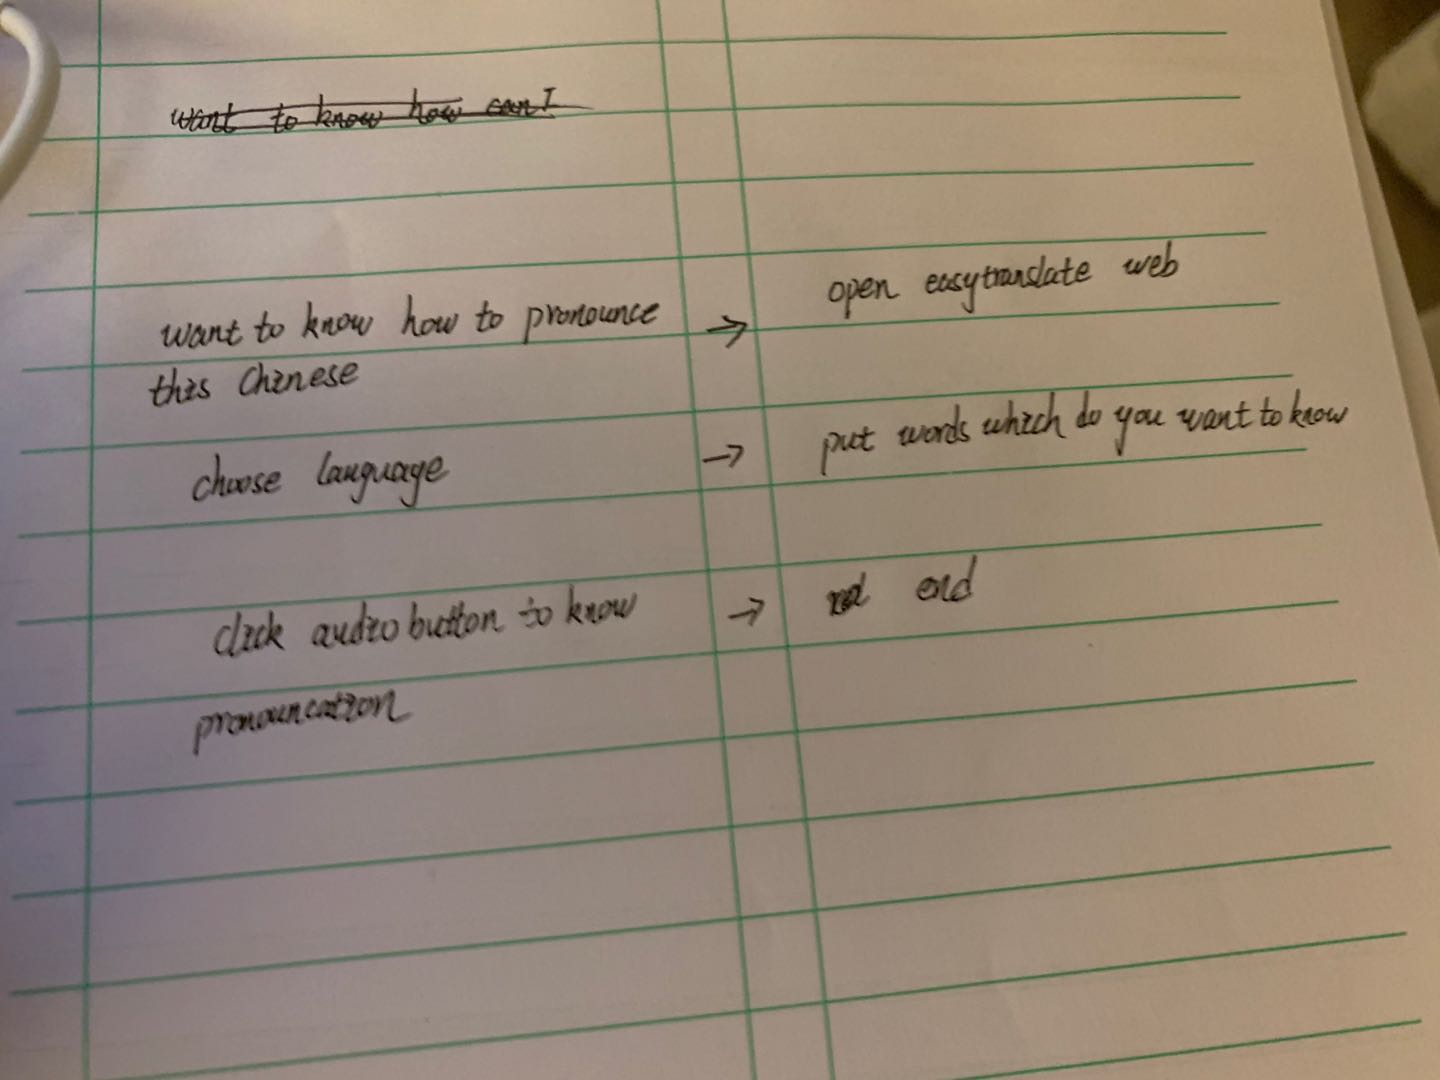 want to know how can I
want to know how to pronounce → open easytranslate web
this Chinese
choose language → put words which do you want to know
click audio button to know → end
pronouncation